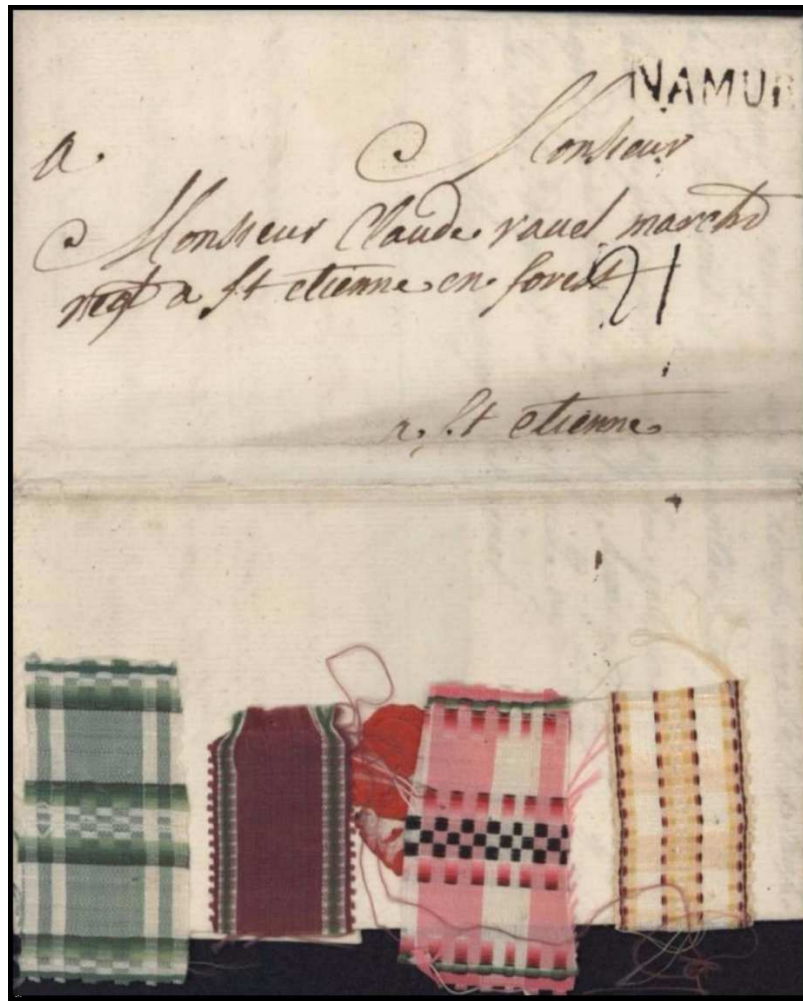 NAMUR
a. Monsieur
Monsieur Claude ravel marchd
negt a st etienne en forest
21
a. st etienne